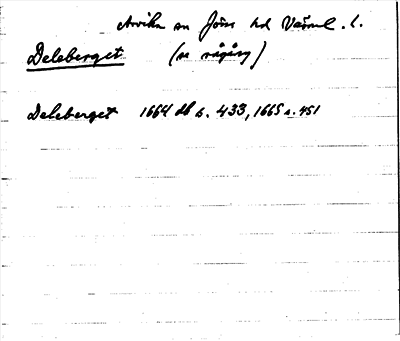 Arvika sn Jösse hd Värml. l.
Deleberget (se rågång)
Deleberget 1664 db s. 433, 1665 s. 451